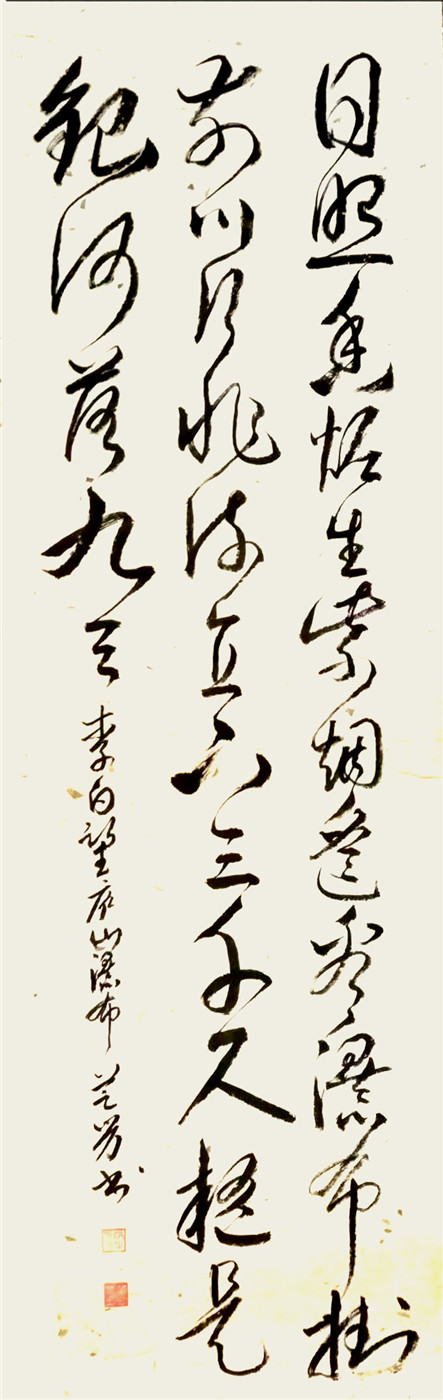 日照香炉生紫烟遥看瀑布掛
前川飛流直下三千尺疑是
銀河落九天
李白望庐山瀑布 书